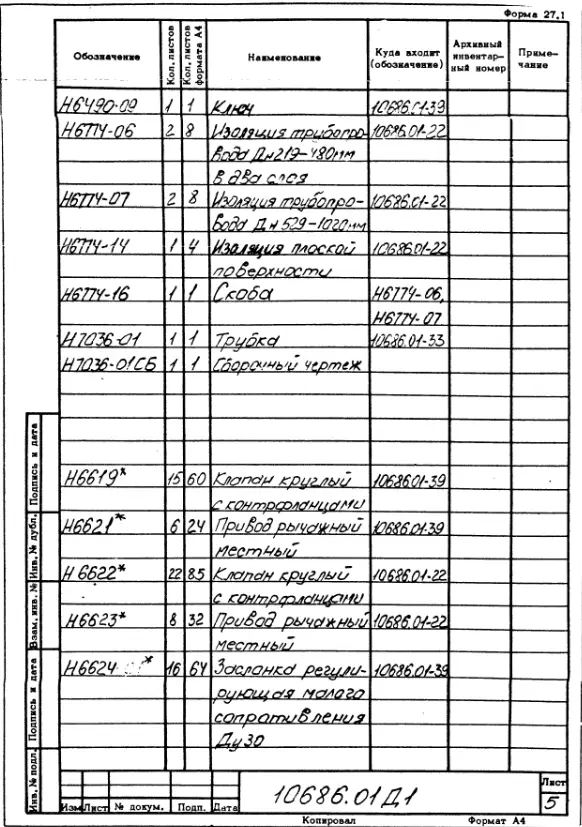 Форма 27.1
Обозначение Кол. листов Кол. листов формата А4 Наименование Куда входит (обозначение) Архивный инвентарный номер Примечание
Н6490-09 1 1 Ключ 10686.01-39
Н6774-06 2 8 Изоляция трубопро- 10686.01-22
вода Дн219-480мм
в два слоя
Н6774-07 2 8 Изоляция трубопро- 10686.01-22
вода Дн 529-1020мм
Н6774-14 1 4 Изоляция плоской 10686.01-22
поверхности
Н6774-16 1 1 Скоба Н6774-06,
Н6774-07
Н7036-01 1 1 Трубка 10686.01-33
Н7036-01СБ 1 1 Сборочный чертеж
Н6619* 15 60 Клапан круглый 10686.01-39
с контрфланцами
Н6621* 6 24 Привод рычажный 10686.01-39
местный
Н6622* 22 85 Клапан круглый 10686.01-22
с контрфланцами
Н6623* 8 32 Привод рычажный 10686.01-22
местный
Н6624* 16 64 Заслонка регули- 10686.01-39
рующая малого
сопротивления
Ду30
Инв.№ подл. Подпись и дата Взам. инв. № Инв. № дубл. Подпись и дата
10686.01Д1
Лист
5
Изм Лист № докум. Подп. Дата
Копировал Формат А4